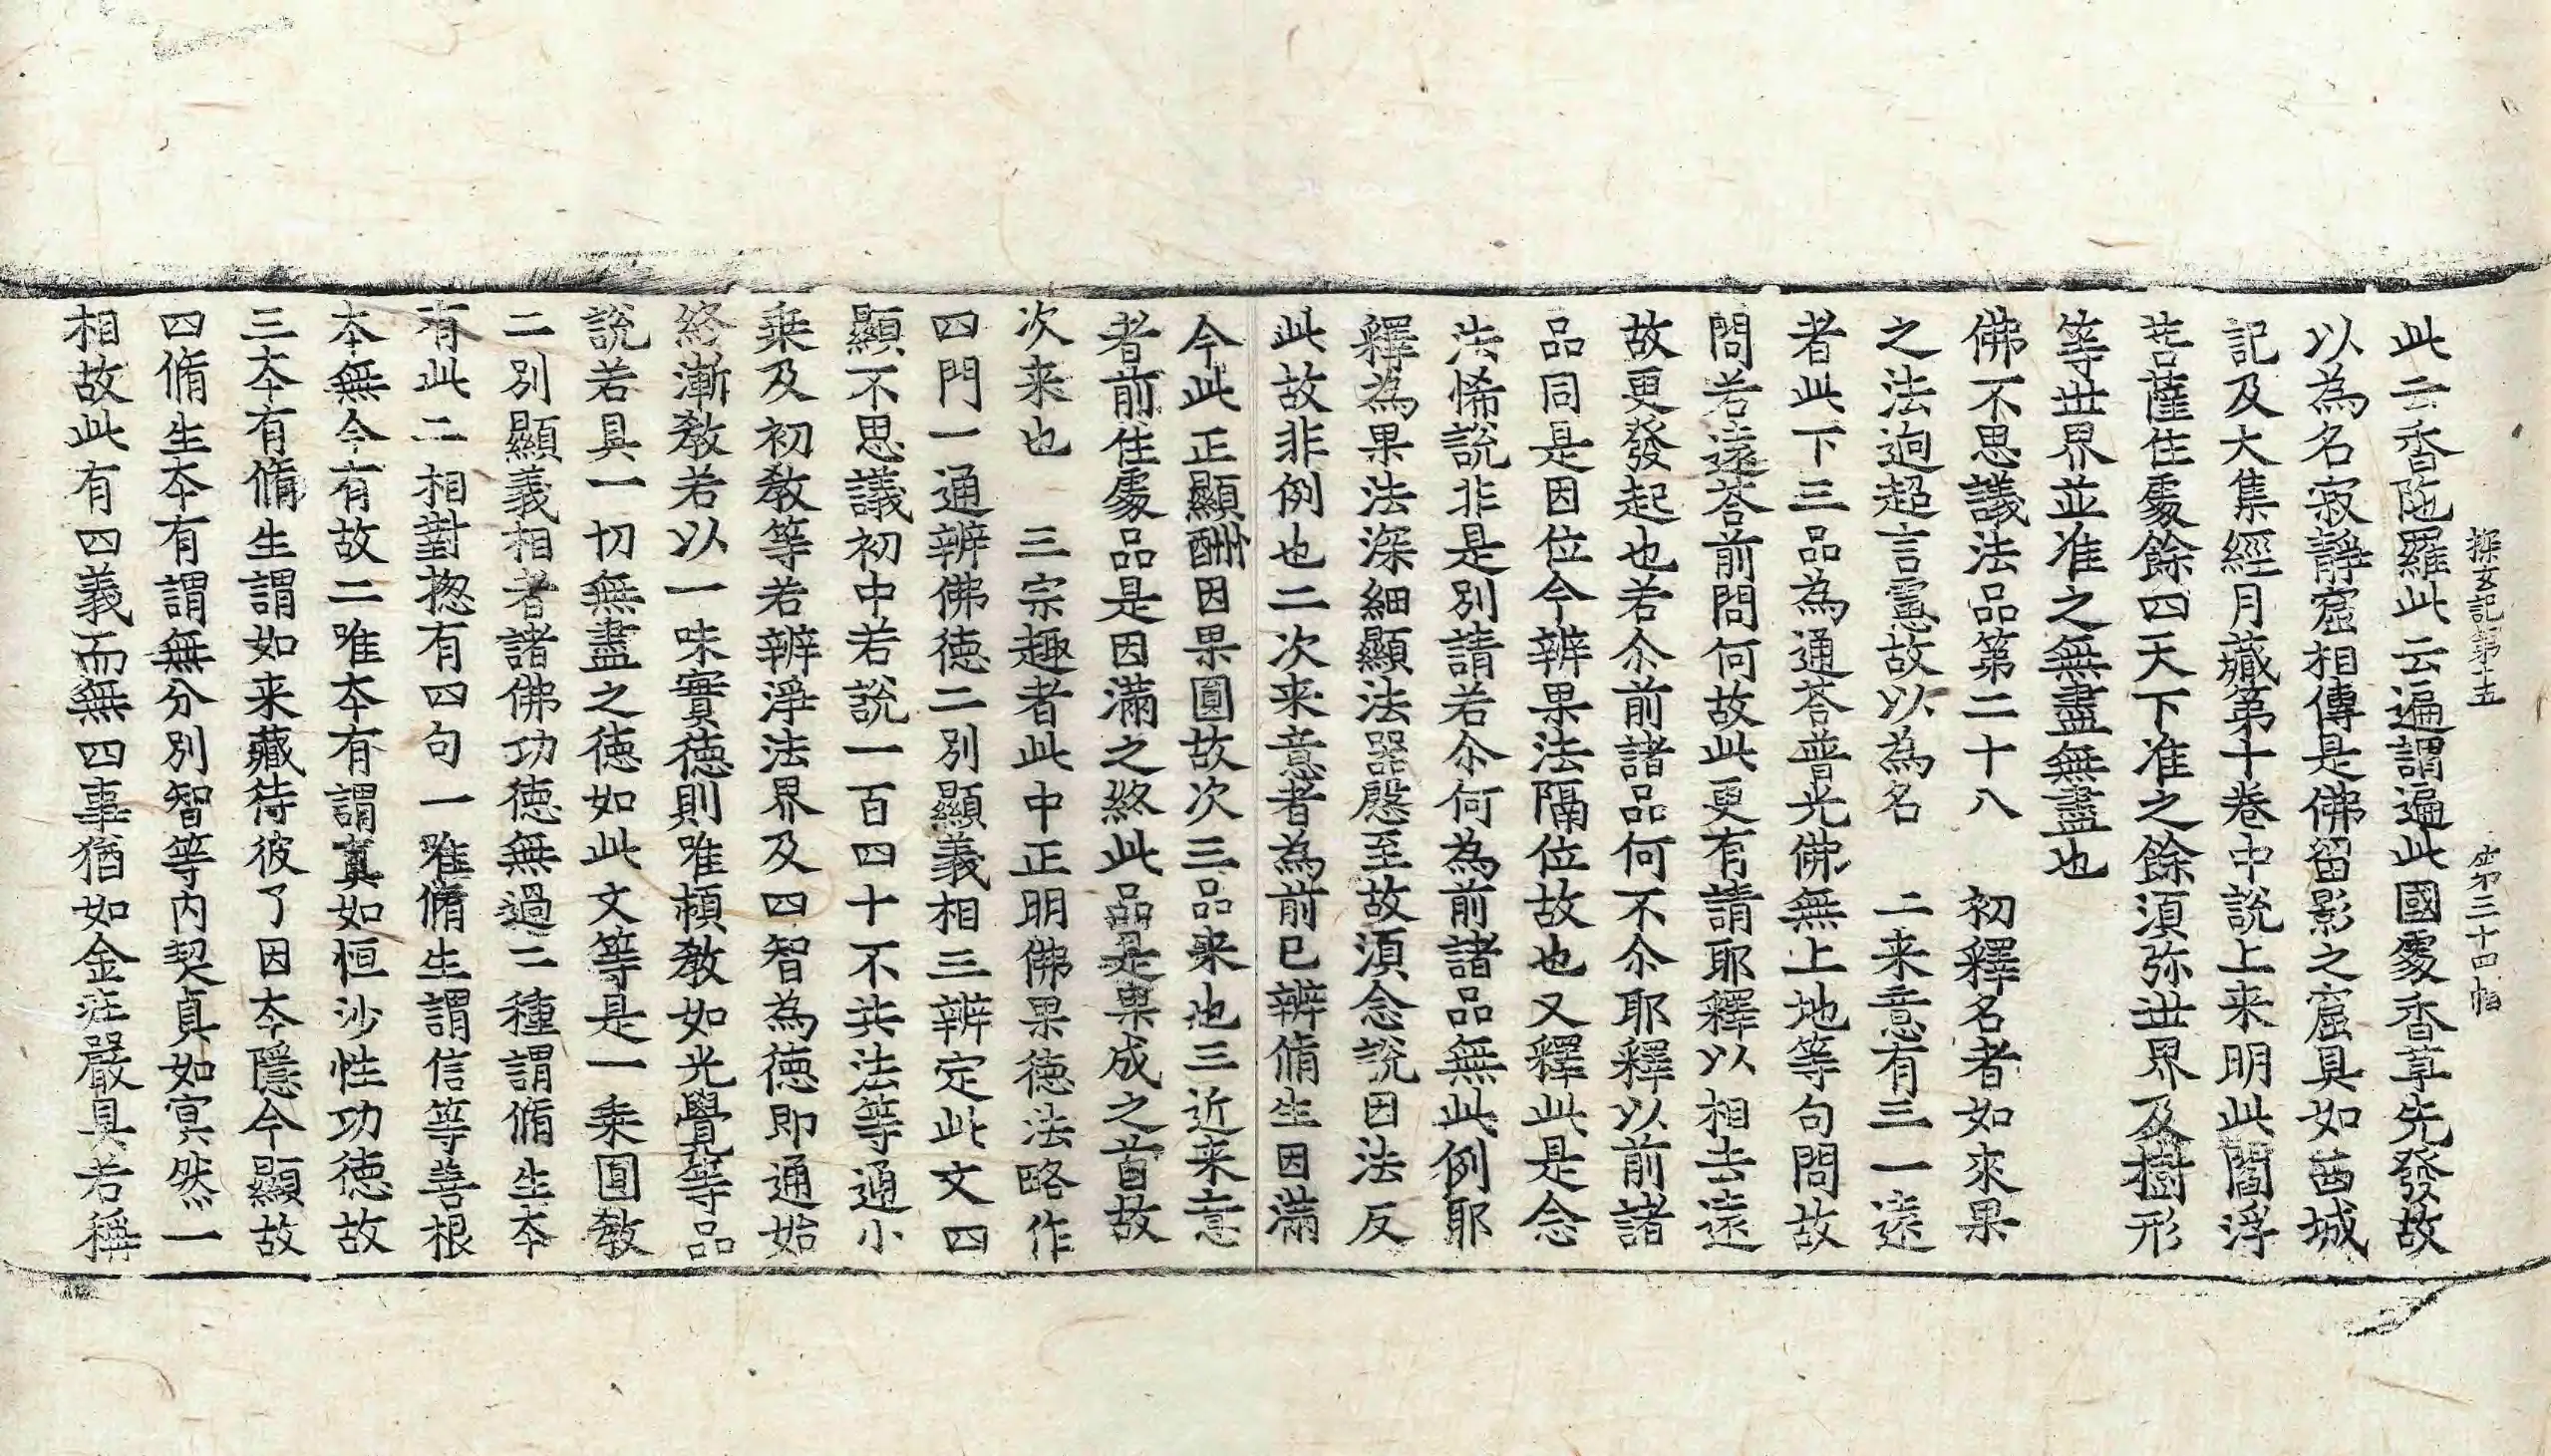 探玄記第十五　　第三十四幅
此云香陁羅此云遍謂遍此國處香草先發故
以為名寂靜窟相傳是佛留影之窟具如西城
記及大集經月藏第十卷中說上来明此閻浮
菩薩住處餘四天下准之餘湏弥世界及樹形
等世界並准之無盡無盡也
佛不思議法品第二十八　初釋名者如來果
之法逈超言慮故以為名　二来意有三一遠
者此下三品為通荅普光佛無上地等句問故
問若遠荅前問何故此更有請耶釋以相去遠
故更發起也若尒前諸品何不尒耶釋以前諸
品同是因位今辨果法隔位故也又釋此是念
法悕說非是別請若尒何為前諸品無此例耶
釋為果法深細顯法器慇至故湏念說因法反
此故非例也二次来意者為前已辨脩生因滿
今此正顯酬因果圓故次三品来也三近来意
者前住處品是因滿之終此品是果成之首故
次来也　三宗趣者此中正明佛果徳法略作
四門一通辨佛徳二別顯義相三辨定此文四
顯不思議初中若說一百四十不共法等通小
乗及初教等若辨淨法界及四智為徳即通始
終漸教若以一味實徳則唯頓教如光覺等品
說若具一切無盡之徳如此文等是一乗圓教
二別顯義相者諸佛功徳無過二種謂脩生夲
有此二相對揔有四句一唯脩生謂信等善根
本無今有故二唯夲有謂真如恒沙性功徳故
三夲有脩生謂如来藏待彼了因夲隱今顯故
四脩生夲有謂無分別智等内契真如冥然一
相故此有四義而無四事猶如金莊嚴具若稱